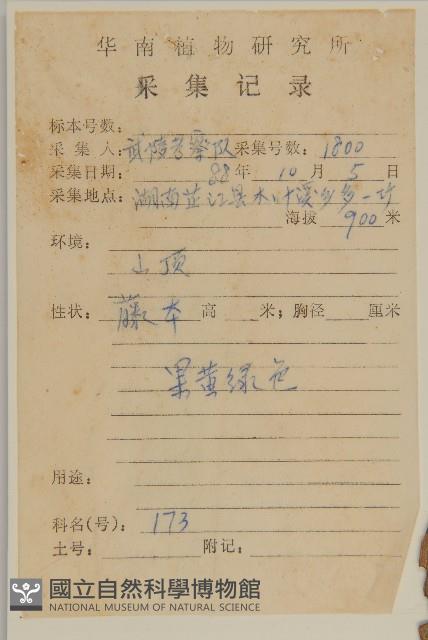 华南植物研究所
采集记录
标本号数：
采集人：武陵考察队 采集号数：1800
采集日期： 88年 10月 5日
采集地点：湖南芷江县木叶溪乡
海拔 900米
环境：
山顶
性状：藤本 高 米；胸径 厘米
果黄绿色
用途：
科名(号)：173
土号： 附记：
國立自然科學博物館
NATIONAL MUSEUM OF NATURAL SCIENCE